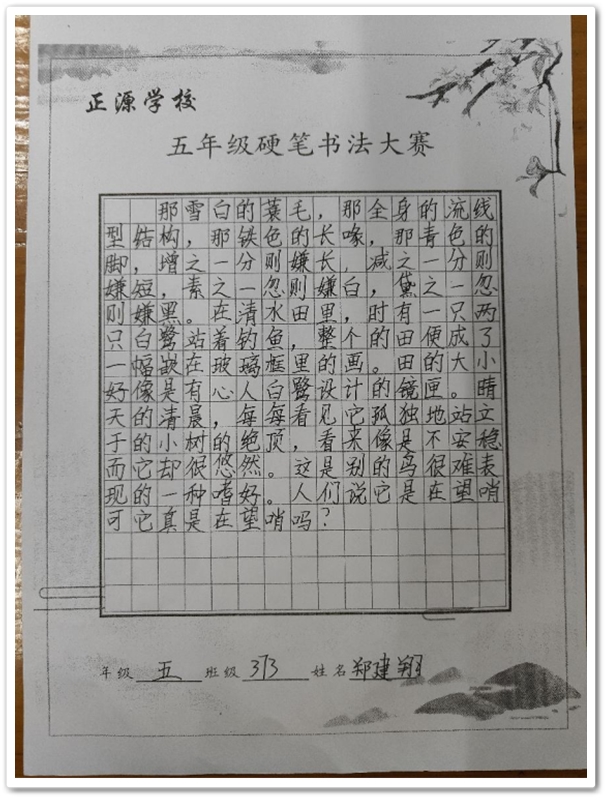 正源学校
五年级硬笔书法大赛
那雪白的蓑毛，那全身的流线
型结构，那铁色的长喙，那青色的
脚，增之一分则嫌长，减之一分则
嫌短，素之一忽则嫌白，黛之一忽
则嫌黑。在清水田里，时有一只两
只白鹭站着钓鱼，整个的田便成了
一幅嵌在玻璃框里的画。田的大小
好像是有心人白鹭设计的镜匣。晴
天的清晨，每每看见它孤独地站立
于的小树的绝顶，看来像是不安稳
而它却很悠然。这是别的鸟很难表
现的一种嗜好。人们说它是在望哨
可它真是在望哨吗？
年级 五 班级 313 姓名 郑建翔